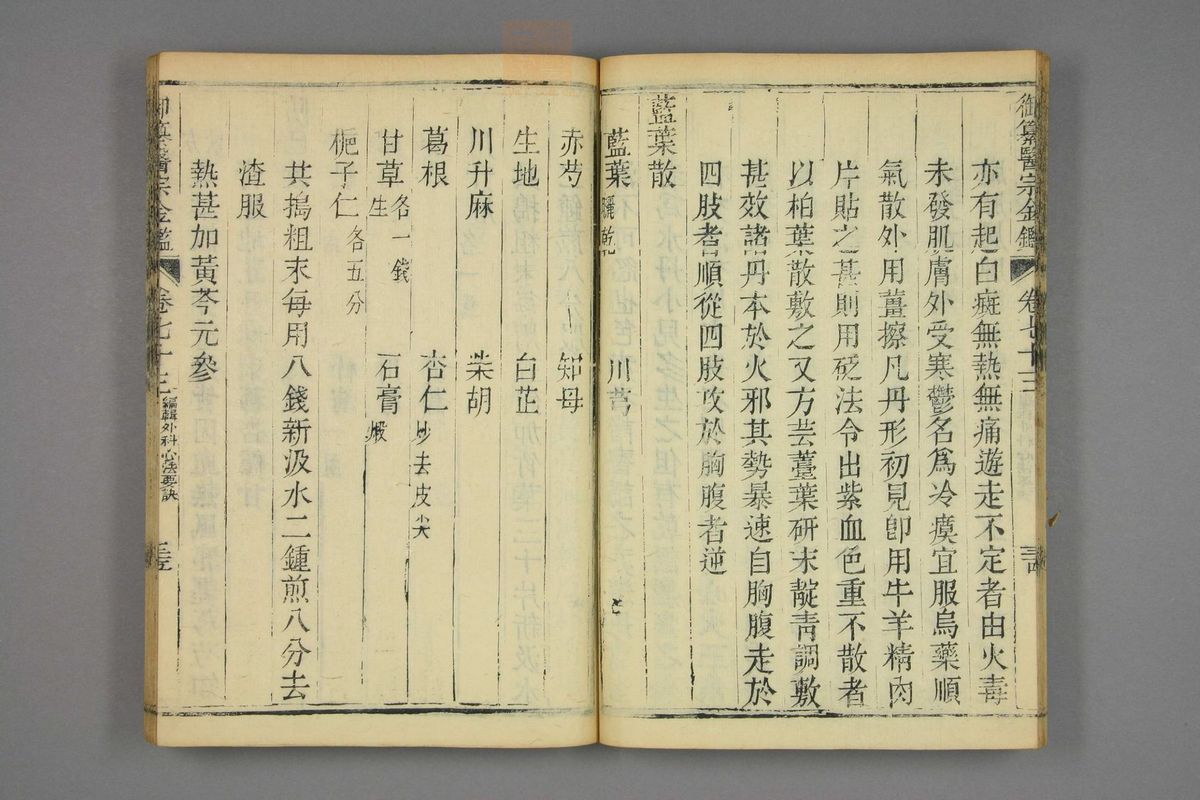 御纂醫宗金鑑 卷七十三 三四
亦有起白癍無熱無痛遊走不定者由火毒
未發肌膚外受寒鬱名爲冷瘼宜服烏藥順
氣散外用薑擦凡丹形初見卽用牛羊精肉
片貼之甚則用砭法令出紫血色重不散者
以柏葉散敷之又方芸薹葉研末靛青調敷
甚效諸丹本於火邪其勢暴速自胸腹走於
四肢者順從四肢攻於胸腹者逆
藍葉散
藍葉 曬乾 川芎
赤芍 知母
生地 白芷
川升麻 柴胡
葛根 杏仁 炒去皮尖
甘草 生 各一錢 石膏 煅
梔子仁 各五分
共搗粗末每用八錢新汲水二鍾煎八分去
渣服
熱甚加黃芩元參
御纂醫宗金鑑 卷七十三 編輯外科心法要訣 三五